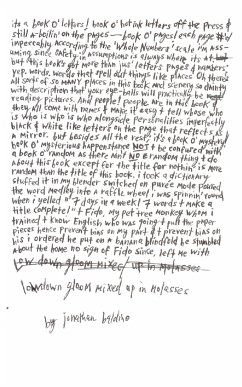 it's a book o' letters! book o' hot ink letters off the press &
still a-boilin' on the pages—book o' pages! each page #'d
impeccably according to the 'Whole Numbers' scale i'm ass-
uming since safety in assumptions is always where it's at
but this book's got more than ins' letters pages & numbers'
yep. words. words that spell out things like places. Oh there's
all sorts of so many places in this book and scenery so dainty
with description that your eye-balls will practically be
reading pictures. And people! people are in this book &
they all come with names & make it easy t' tell whose who
is who is who is who alongside personalities imperfectly
black & white like letters on the page that reflects as
a mirror. but besides all the rest, it's a book o' mystery!
book o' mysterious happenstance NOT t' be confused with
a book o' random as there ain't NO random thing t' do
about this book except for the title for nothin' is more
random than the title of this book. i took a dictionary
stuffed it in my blender switched on pureé mode poured
the word medley into a raffle wheel. i was spinnin' round
when i yelled o' '7 days in a week! 7 words t' make a
title complete!' t' Fido, my pet tree monkey whom i
trained t' know English who was going t' pull the paper
pieces hence prevent bias on my part & t' prevent bias on
his i ordered he put on a banana blindfold he stumbled
about the home no sign of Fido since, left me with
low down gloom mixed up in molasses
lowdown gloom mixed up in molasses
by jonathan baldino